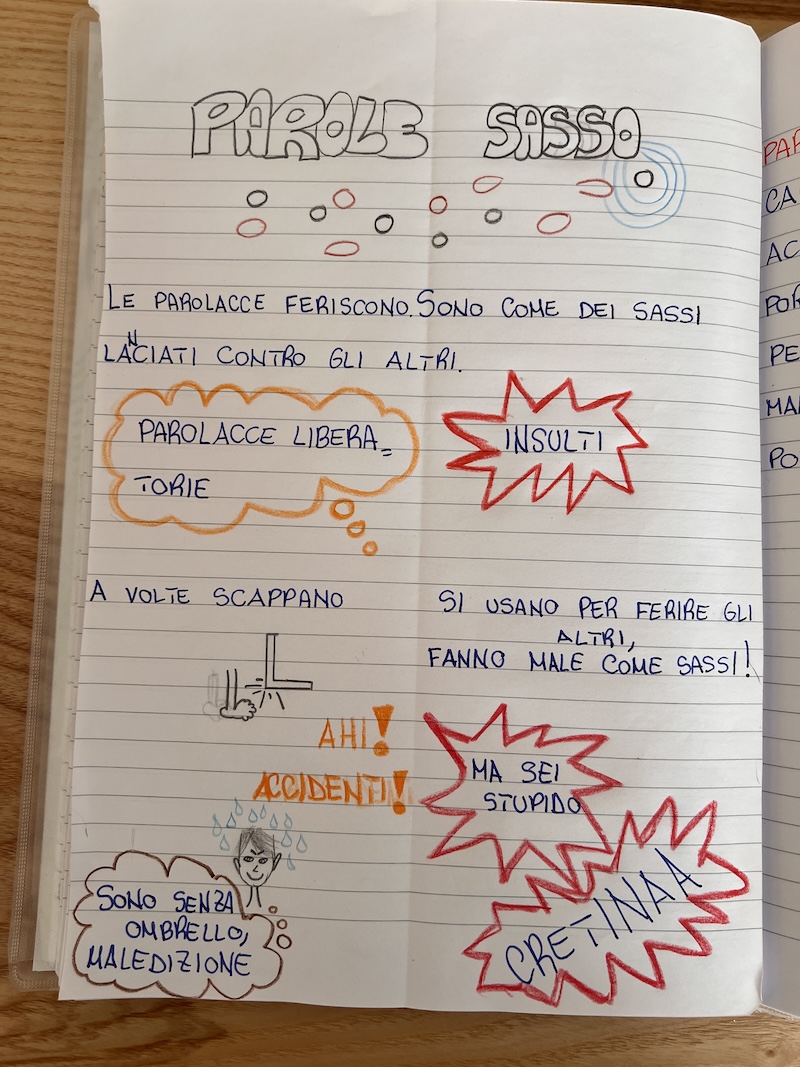 PAROLE SASSO
LE PAROLACCE FERISCONO. SONO COME DEI SASSI
LANCIATI CONTRO GLI ALTRI.
PAROLACCE LIBERA=
TORIE
INSULTI
A VOLTE SCAPPANO
SI USANO PER FERIRE GLI
ALTRI,
FANNO MALE COME SASSI!
AHI!
ACCIDENTI!
MA SEI
STUPIDO
CRETINAA
SONO SENZA
OMBRELLO,
MALEDIZIONE
PAR
CA
AC
POR
PE
MA
PO